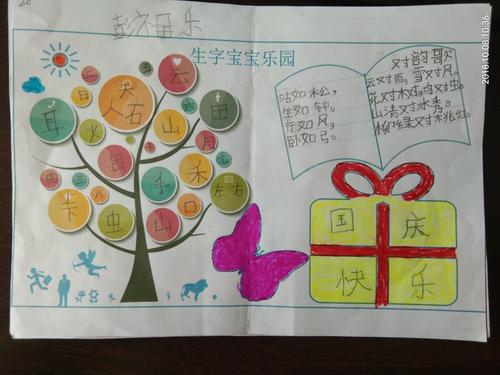 生字宝宝乐园
云
天
日
人石
耳
火
山
田
目
月
手
禾
左右
虫
山
口
站如松。
坐如钟。
行如风。
卧如弓。
对韵歌
云对雨,雪对风。
花对树,鸟对虫。
山清对水秀。
柳绿对桃红。
国 庆
快 乐
2018.10.08 10:36